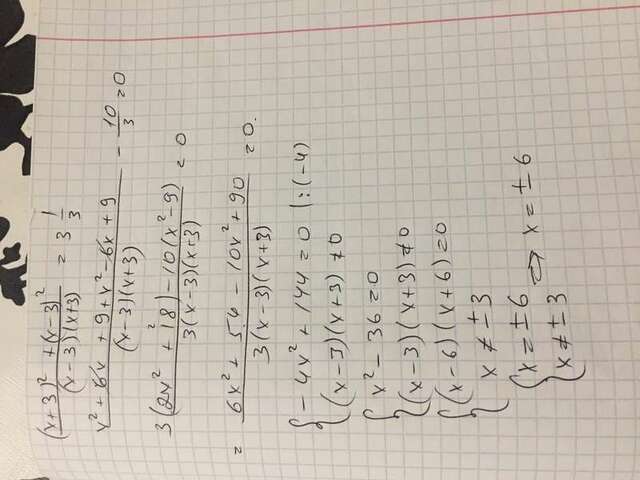 ((x+3)² + (x-3)²) / ((x-3)(x+3)) = 3 1/3
(x² + 6x + 9 + x² - 6x + 9) / ((x-3)(x+3)) - 10/3 = 0
(3(2x² + 18) - 10(x² - 9)) / (3(x-3)(x+3)) = 0
= (6x² + 54 - 10x² + 90) / (3(x-3)(x+3)) = 0.
{ -4x² + 144 = 0 |:(-4)
(x-3)(x+3) ≠ 0
{ x² - 36 = 0
(x-3)(x+3) ≠ 0
{ (x-6)(x+6) = 0
x ≠ ±3
{ x = ±6 ⇒ x = ±6
x ≠ ±3